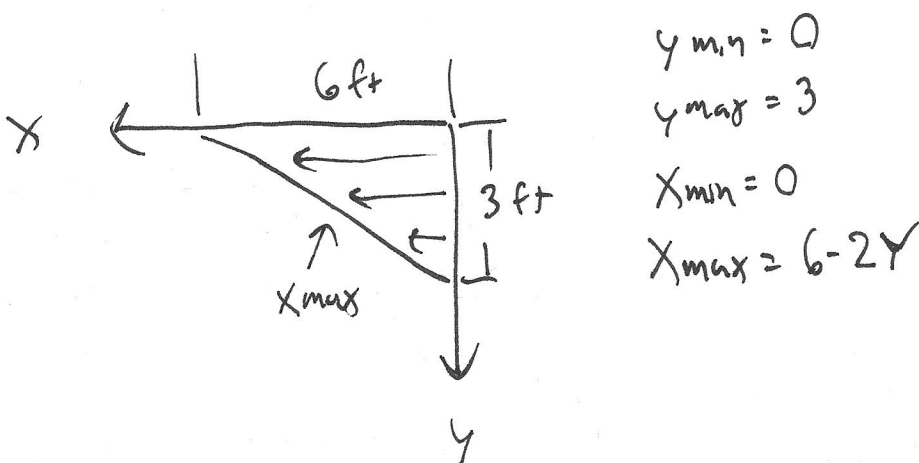 6 ft
X
3 ft
Xmax
y
y min = 0
y max = 3
Xmin = 0
Xmax = 6-2Y